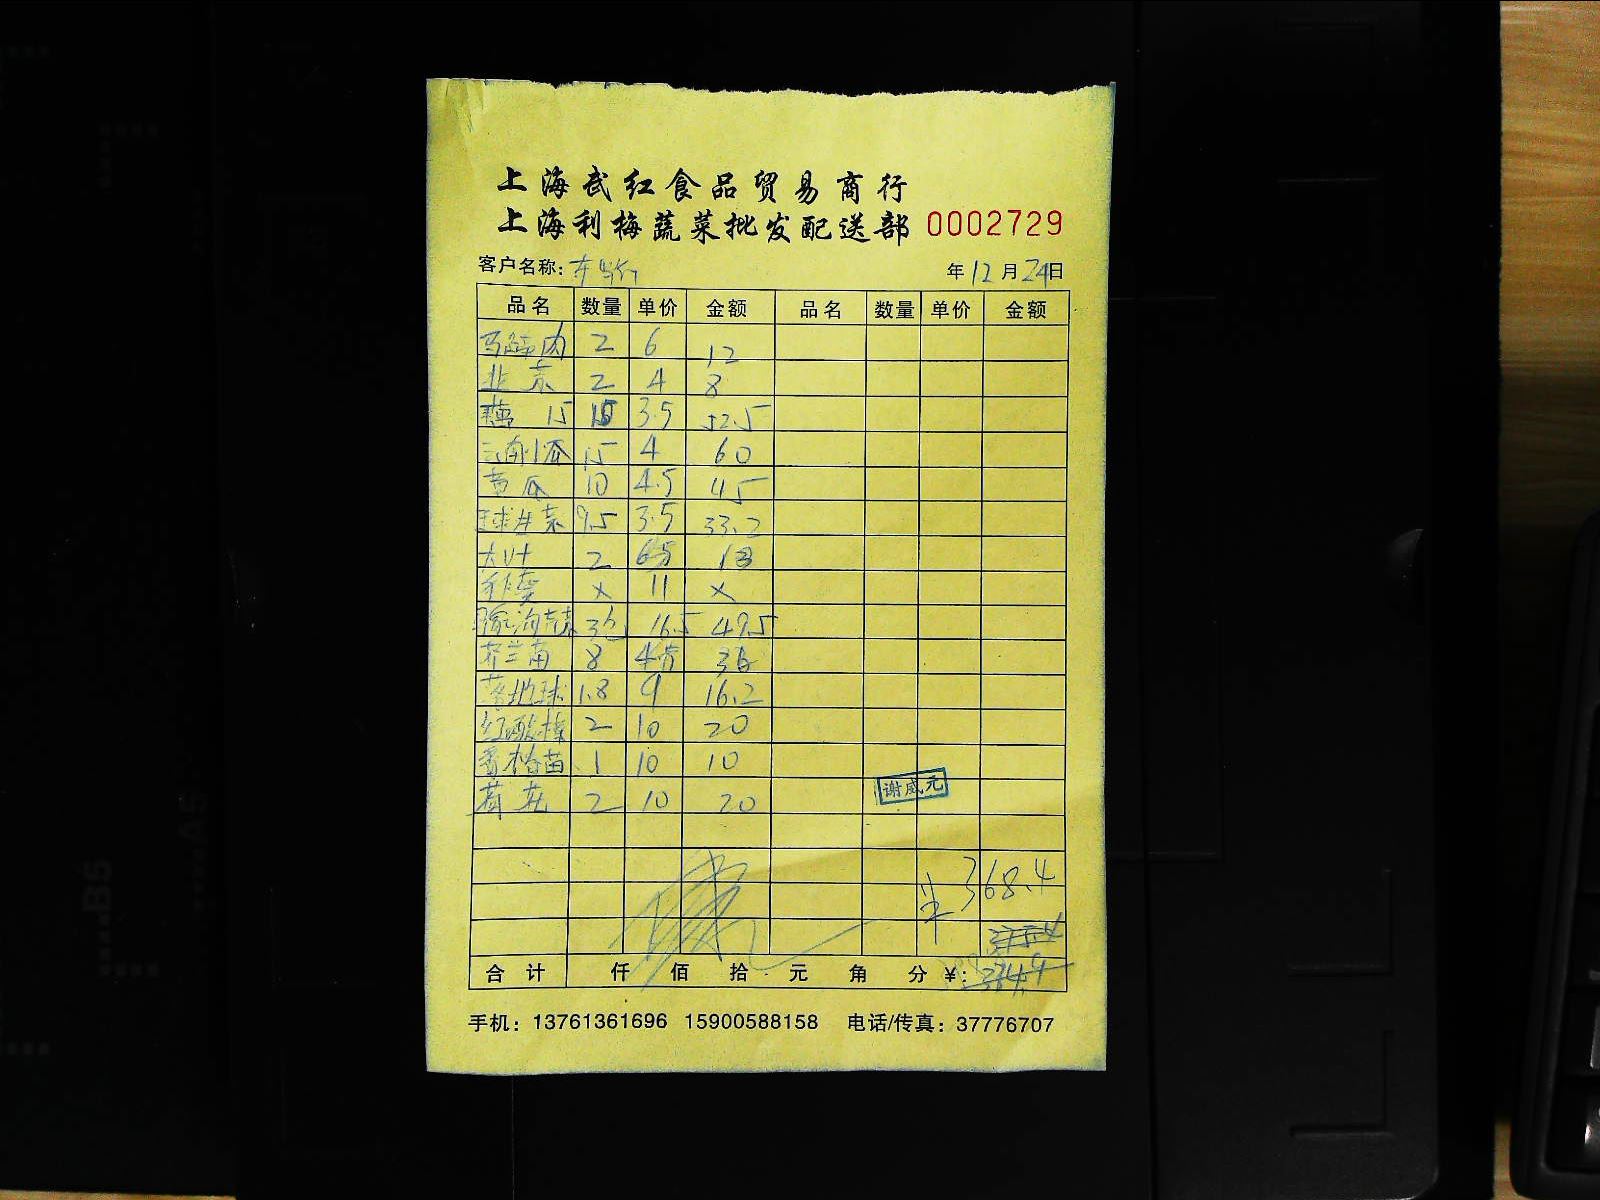 上海武红食品贸易商行
上海利梅蔬菜批发配送部 0002729
客户名称: 年 12 月 24 日
品名 数量 单价 金额 品名 数量 单价 金额
马蹄肉 2 6 12
韭菜 2 4 8
藕 15 15 3.5 52.5
云南小瓜 15 4 60
黄瓜 10 4.5 45
球生菜 9.5 3.5 33.2
大叶 2 6.5 13
秋葵 x 11 x
3包 16.5 49.5
芥兰 8 4.5 36
落地球 1.8 9 16.2
红酸模 2 10 20
10 10
苗 1
荷花 2 10 20
谢威元
368.4
合计 仟 佰 拾 元 角 分 ¥:
手机: 13761361696 15900588158 电话/传真: 37776707